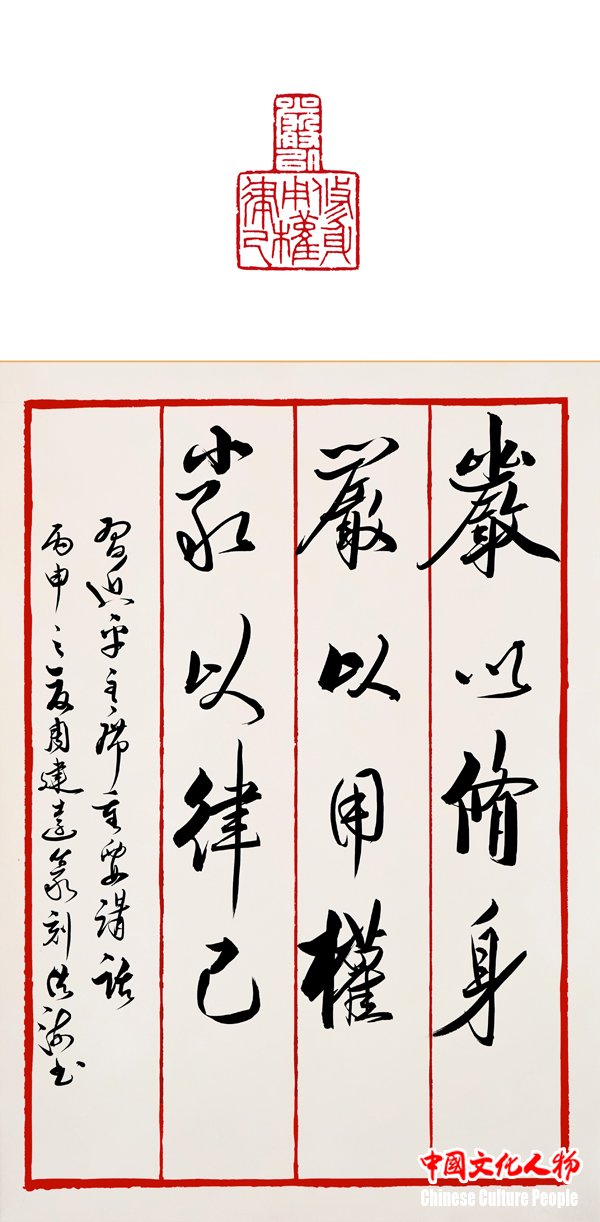 嚴以
修身
用權
律己
嚴以脩身
嚴以用權
嚴以律己
習近平主席重要講話
丙申之夏周建遠篆刻洪海书
中國文化人物
Chinese Culture People